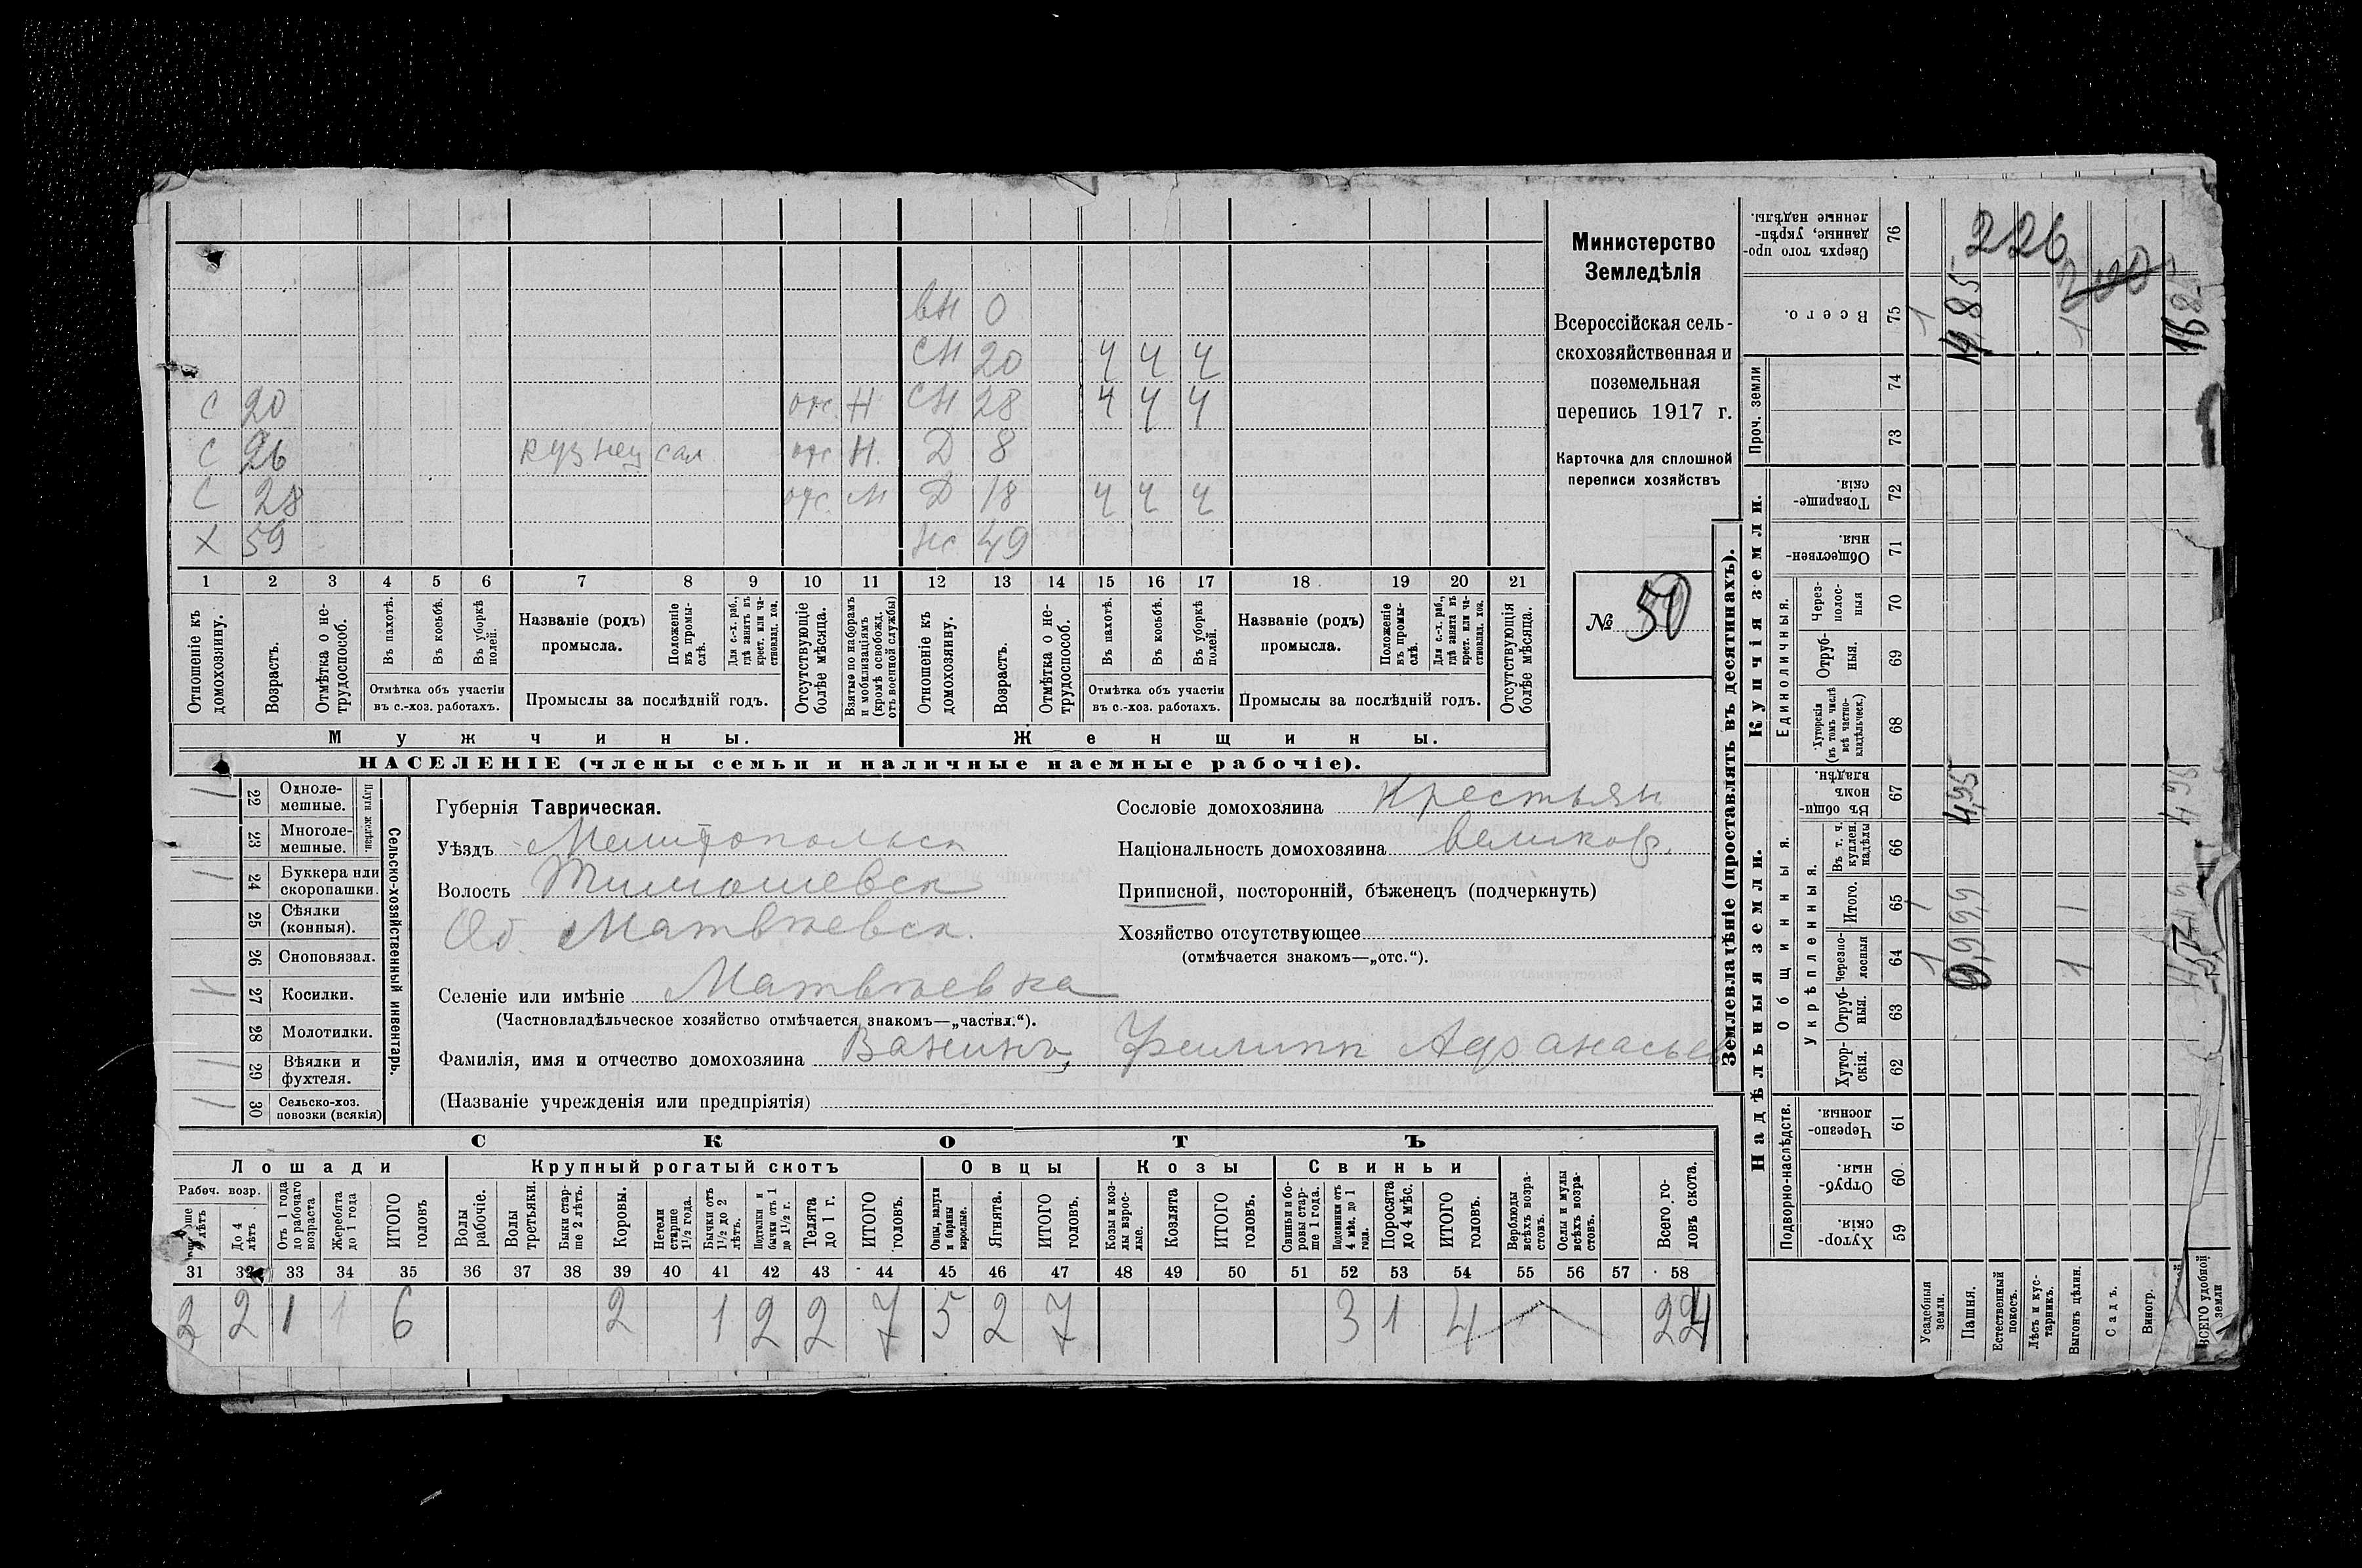 вн 0
сн 20 ч ч ч
С 20 отс. Н СН 28 ч ч ч
С 26 кузнец сам отс Н. Д 8
С 28 отс. М Д 18 ч ч ч
Х 59 жс 49
1 2 3 4 5 6 7 8 9 10 11 12 13 14 15 16 17 18 19 20 21
Отношеніе къ домохозяину.
Возрастъ.
Отмѣтка о нетрудоспособ.
Въ пахотѣ.
Въ косьбѣ.
Въ уборкѣ полей.
Отмѣтка объ участіи въ с.-хоз. работахъ.
Названіе (родъ) промысла.
Положеніе въ промыслѣ.
Для с.-х. раб., гдѣ занятъ въ крест. или частновлад. хоз.
Промыслы за послѣдній годъ.
Отсутствующіе болѣе мѣсяца.
Взятые по наборамъ и мобилизаціямъ (кромѣ освобожд. отъ военной службы)
Отношеніе къ домохозяину.
Возрастъ.
Отмѣтка о нетрудоспособ.
Въ пахотѣ.
Въ косьбѣ.
Въ уборкѣ полей.
Отмѣтка объ участіи въ с.-хоз. работахъ.
Названіе (родъ) промысла.
Положеніе въ промыслѣ.
Для с.-х. раб., гдѣ занята въ крест. или частновлад. хоз.
Промыслы за послѣдній годъ.
Отсутствующія болѣе мѣсяца.
Мужчины. Женщины.
НАСЕЛЕНІЕ (члены семьи и наличные наемные рабочіе).
Министерство
Земледѣлія
Всероссійская сель-
скохозяйственная и
поземельная
перепись 1917 г.
Карточка для сплошной
переписи хозяйствъ
№ 50
Сельско-хозяйственный инвентарь.
Плуги желѣзн.
22 Одноле-мешные.
23 Многоле-мешные.
24 Буккера или скоропашки.
25 Сѣялки (конныя).
26 Сноповязал.
27 Косилки.
28 Молотилки.
29 Вѣялки и фухтеля.
30 Сельско-хоз. повозки (всякія)
Губернія Таврическая.
Уѣздъ Мелитопольск
Волость Тимошевск
Об. Матвѣевск.
Селеніе или имѣніе Матвѣевка
(Частновладѣльческое хозяйство отмѣчается знакомъ—„частвл.“).
Фамилія, имя и отчество домохозяина Ванинъ, Филипп Афанасьев
(Названіе учрежденія или предпріятія)
Сословіе домохозяина Крестьян.
Національность домохозяина великор.
Приписной, посторонній, бѣженецъ (подчеркнуть)
Хозяйство отсутствующее
(отмѣчается знакомъ—„отс.“).
СКОТЪ
Лошади Крупный рогатый скотъ Овцы Козы Свиньи
Рабоч. возр.
До 4 лѣтъ
Отъ 1 года до рабочаго возраста
Жеребята до 1 года
ИТОГО головъ
Волы рабочіе.
Волы третьяки.
Быки старше 2 лѣтъ.
Коровы.
Нетели старше 1½ года.
Бычки отъ 1½ до 2 лѣтъ.
Подтелки и бычки отъ 1 до 1½ г.
Телята до 1 г.
ИТОГО головъ.
Овцы, валухи и бараны взрослые.
Ягнята.
ИТОГО головъ.
Козы и козлы взрослые.
Козлята
ИТОГО головъ.
Свиньи и боровы старше 1 года.
Подсвинки отъ 4 мѣс. до 1 года.
Поросята до 4 мѣс.
ИТОГО головъ.
Верблюды всѣхъ возрастовъ.
Ослы и мулы всѣхъ возрастовъ.
Всего головъ скота.
31 32 33 34 35 36 37 38 39 40 41 42 43 44 45 46 47 48 49 50 51 52 53 54 55 56 57 58
2 2 1 1 6 2 1 2 2 7 5 2 7 3 1 4 24
Землевладѣніе (проставлять въ десятинахъ).
Надѣльныя земли. Купчія земли. Проч. земли
Подворно-наслѣдств.
Общинныя.
Укрѣпленныя.
Единоличныя.
59 Хуторскія.
60 Отрубныя.
61 Черезполосныя.
62 Хуторскія.
63 Отрубныя.
64 Черезполосныя
65 Итого.
66 Въ т. ч. куплен. надѣлы
67 Въ общинномъ владѣн.
68 Хуторскія (въ томъ числѣ всѣ частновладѣльческ.)
69 Отрубныя.
70 Черезполосныя
71 Общественныя.
72 Товарищескія.
73
74
75 Всего.
76 Сверхъ того проданные, укрѣпленные надѣлы.
Усадебныя земли.
Пашня.
Естественный покосъ.
Лѣсъ и кустарникъ.
Выгонъ цѣлин.
Садъ.
Виногр.
ВСЕГО удобной земли
1 1 1
9,99 4,95 14,85
1 1 1
226